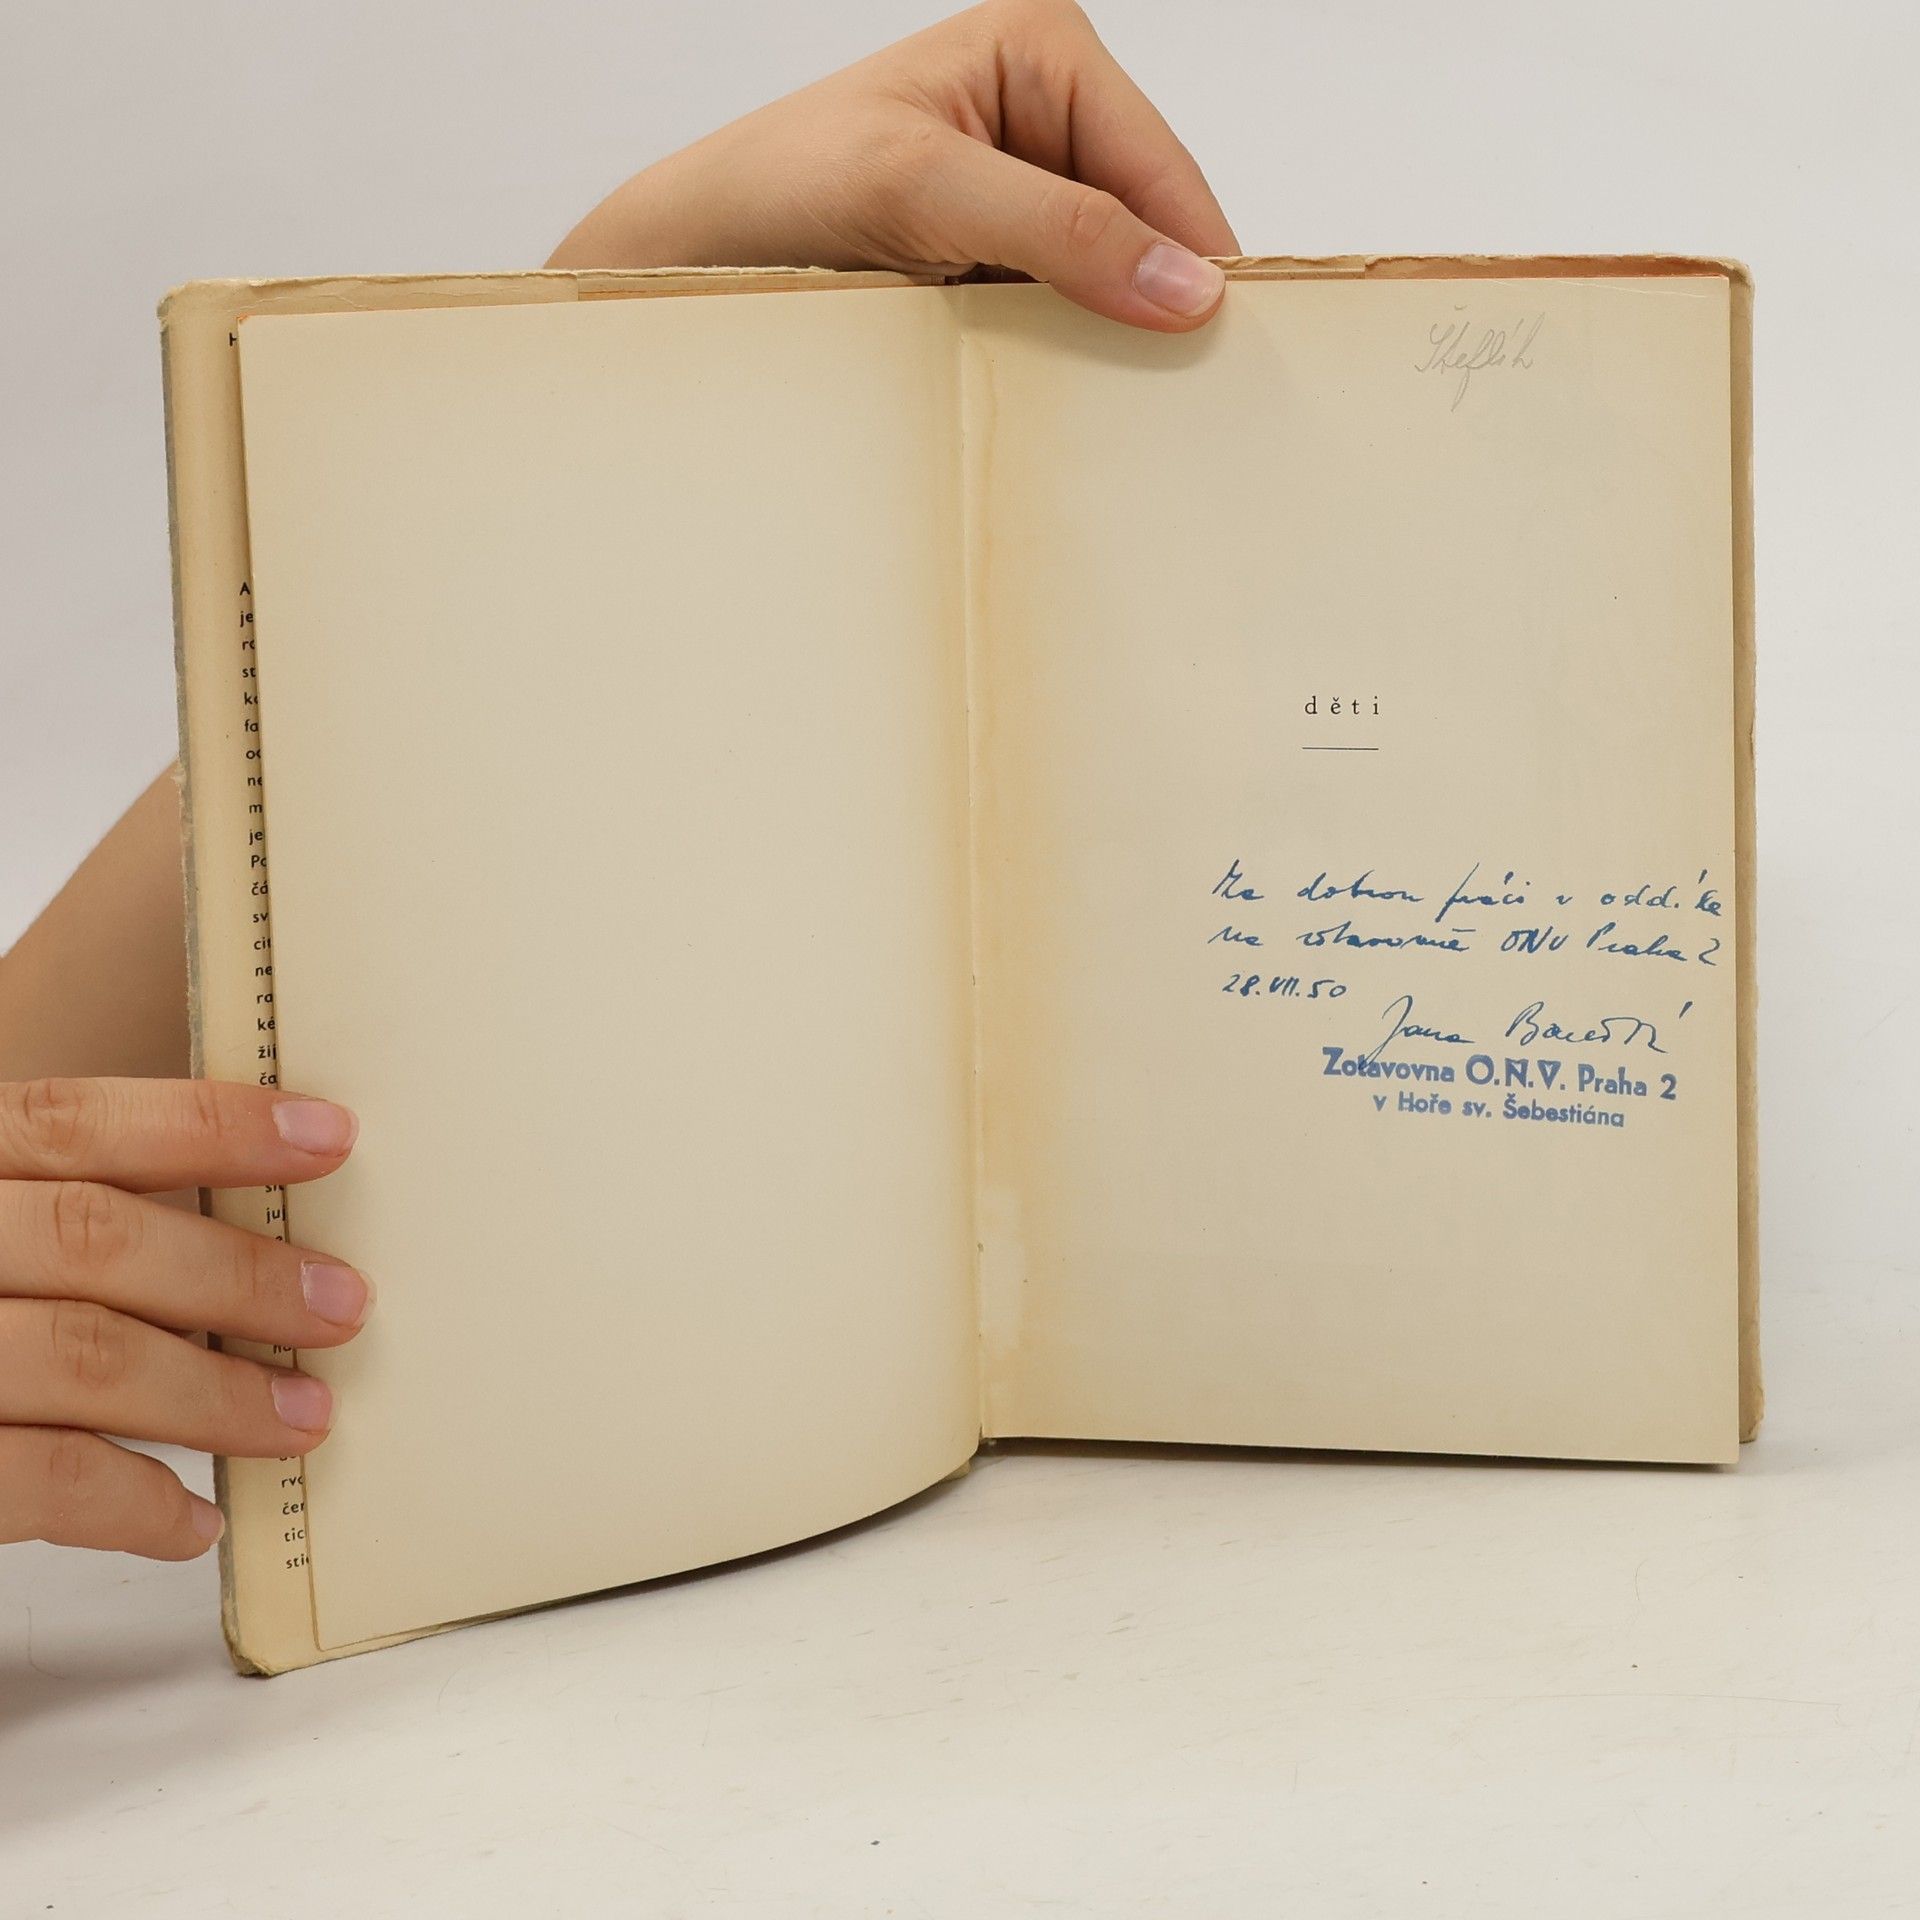 H
A
je
ro
st
ka
fa
oc
ne
m
je
Po
čá
sv
cit
ne
ra
ké
žij
ča
juj
rvo
čer
tic
sti
děti
Za dobrou práci v odd. 
na zotavovně ONV Praha 2
28.VII.50
Jana
Zotavovna O.N.V. Praha 2
v Hoře sv. Šebestiána